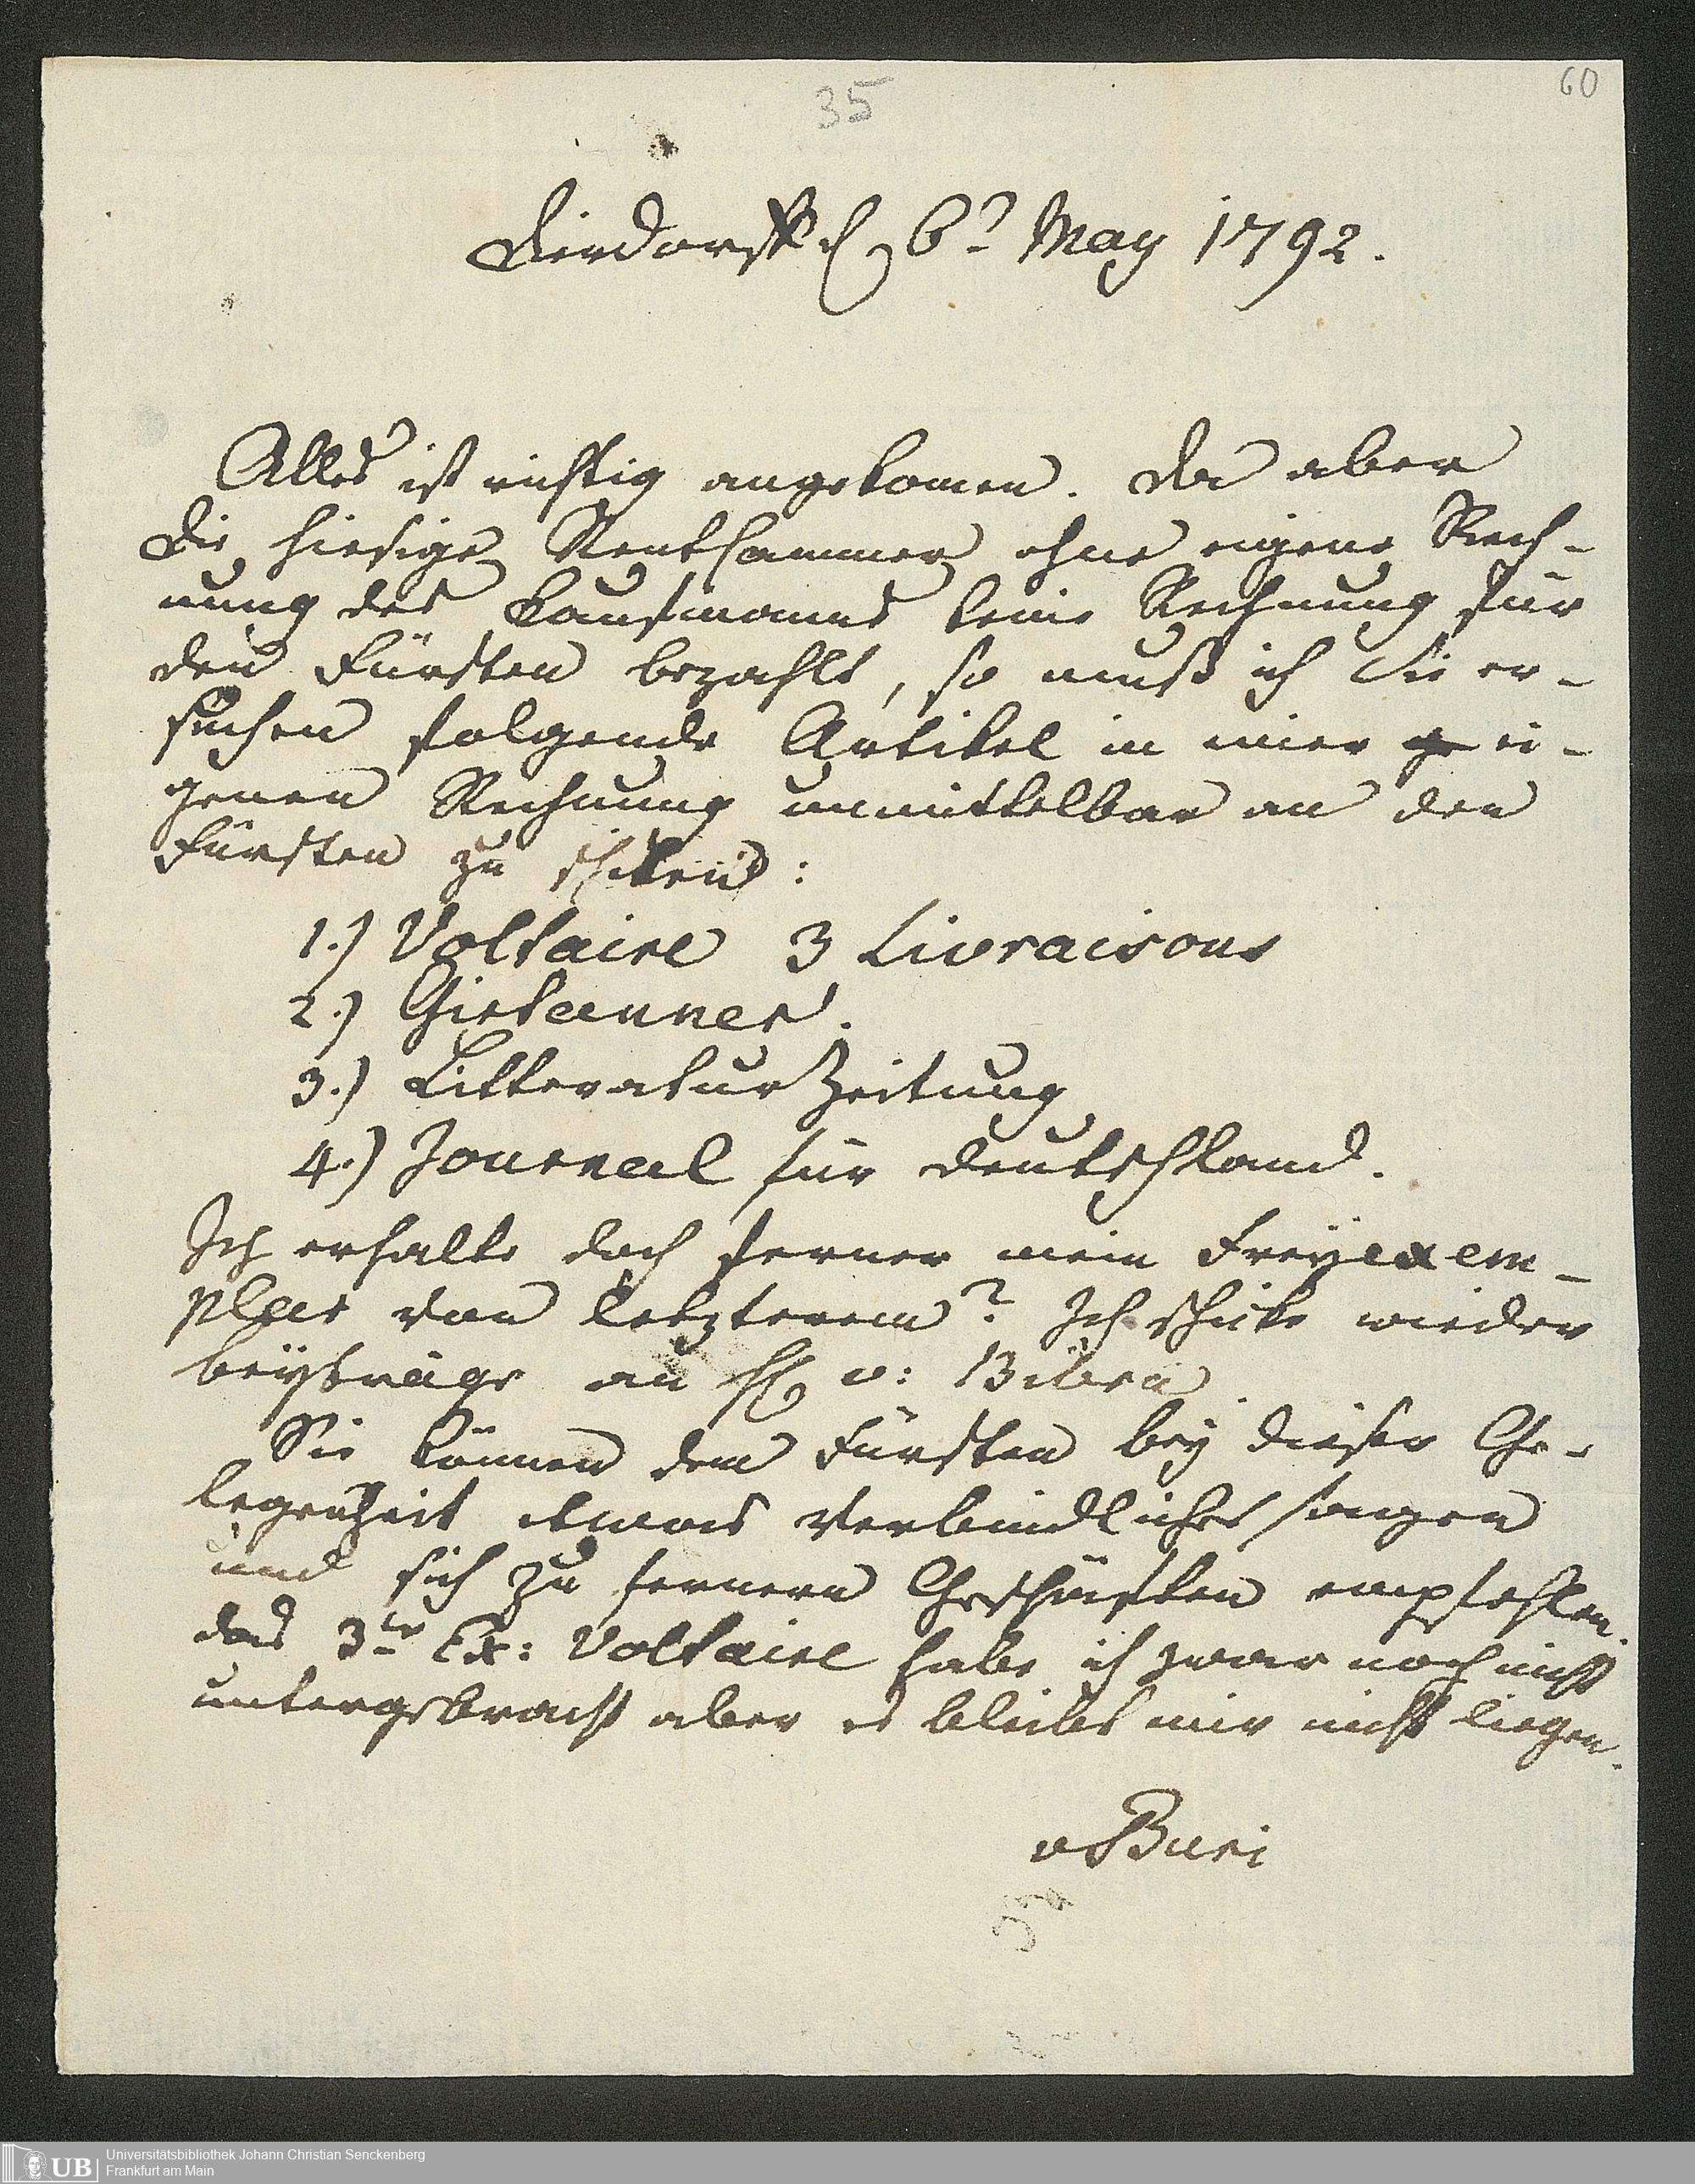 35
60
Dierdorff d 6? May 1792.
Alles ist richtig angekomen. Da aber
die hiesige Rentkammer ohne eigene Rech-
nung des Kaufmanns keine Rechnung für
den Fürsten bezahlt, so muß ich Sie er-
suchen folgende Artikel in einer ei-
genen Rechnung unmittelbar an den
Fürsten zu schiken:
1.) Voltaire 3 Livraisons
2.) Girtanner.
3.) Litteratur Zeitung
4.) Journal für Deutschland.
Ich erhalte doch ferner mein Freyexem-
plar von letzterem? Ich schike wieder
beyträge an H v: Bibra.
Sie können dem Fürsten bey dieser Ge-
legenheit etwas verbindliches sagen
und sich zu fernern Geschäften empfehlen.
das 3te Ex: Voltaire habe ich zwar noch nicht
untergebracht aber es bleibt mir nicht liegen.
vBuri
UB
Universitätsbibliothek Johann Christian Senckenberg
Frankfurt am Main